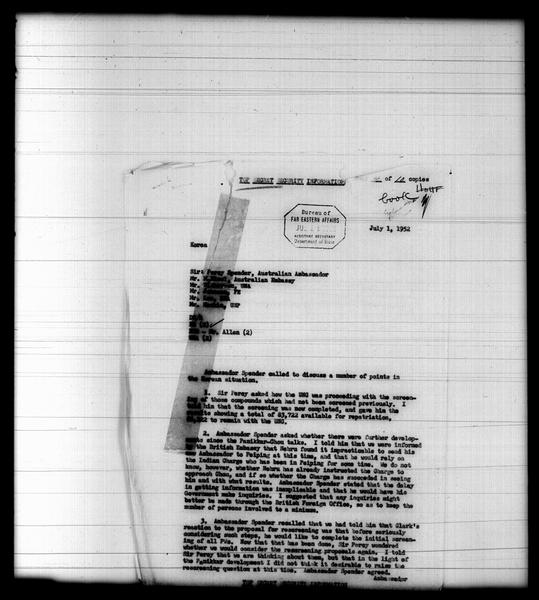 TOP SECRET SECURITY INFORMATION
of 12 copies
Bureau of
FAR EASTERN AFFAIRS
ASSISTANT SECRETARY
Department of State
July 1, 1952
Korea
Sir Percy Spender, Australian Ambassador
Mr. Australian Embassy
Mr. UNA
Mr. FE
Mr.
Mr. UNP
Mr. Allen (2)
Ambassador Spender called to discuss a number of points in
the Korean situation.
1. Sir Percy asked how the UNC was proceeding with the screen-
ing of those compounds which had not been screened previously. I
him that the screening was now completed, and gave him the
showing a total of 83,722 available for repatriation,
to remain with the UNC.
2. Ambassador Spender asked whether there were further develop-
ments since the Panikkar-Chou talks. I told him that we were informed
by the British Embassy that Nehru found it impracticable to send his
new Ambassador to Peiping at this time, and that he would rely on
the Indian Charge who has been in Peiping for some time. We do not
know, however, whether Nehru has already instructed the Charge to
approach Chou, and if so whether the Charge has succeeded in seeing
him and with what results. Ambassador Spender stated that the delay
in getting information was inexplicable and that he would have his
Government make inquiries. I suggested that any inquiries might
better be made through the British Foreign Office, so as to keep the
number of persons involved to a minimum.
3. Ambassador Spender recalled that we had told him that Clark's
reaction to the proposal for rescreening was that before seriously
considering such steps, he would like to complete the initial screen-
ing of all POWs. Now that that has been done, Sir Percy wondered
whether we would consider the rescreening proposals again. I told
Sir Percy that we are thinking about them, but that in the light of
the Panikkar development I did not think it desirable to raise the
rescreening question at this time. Ambassador Spender agreed.
Ambassador
TOP SECRET SECURITY INFORMATION